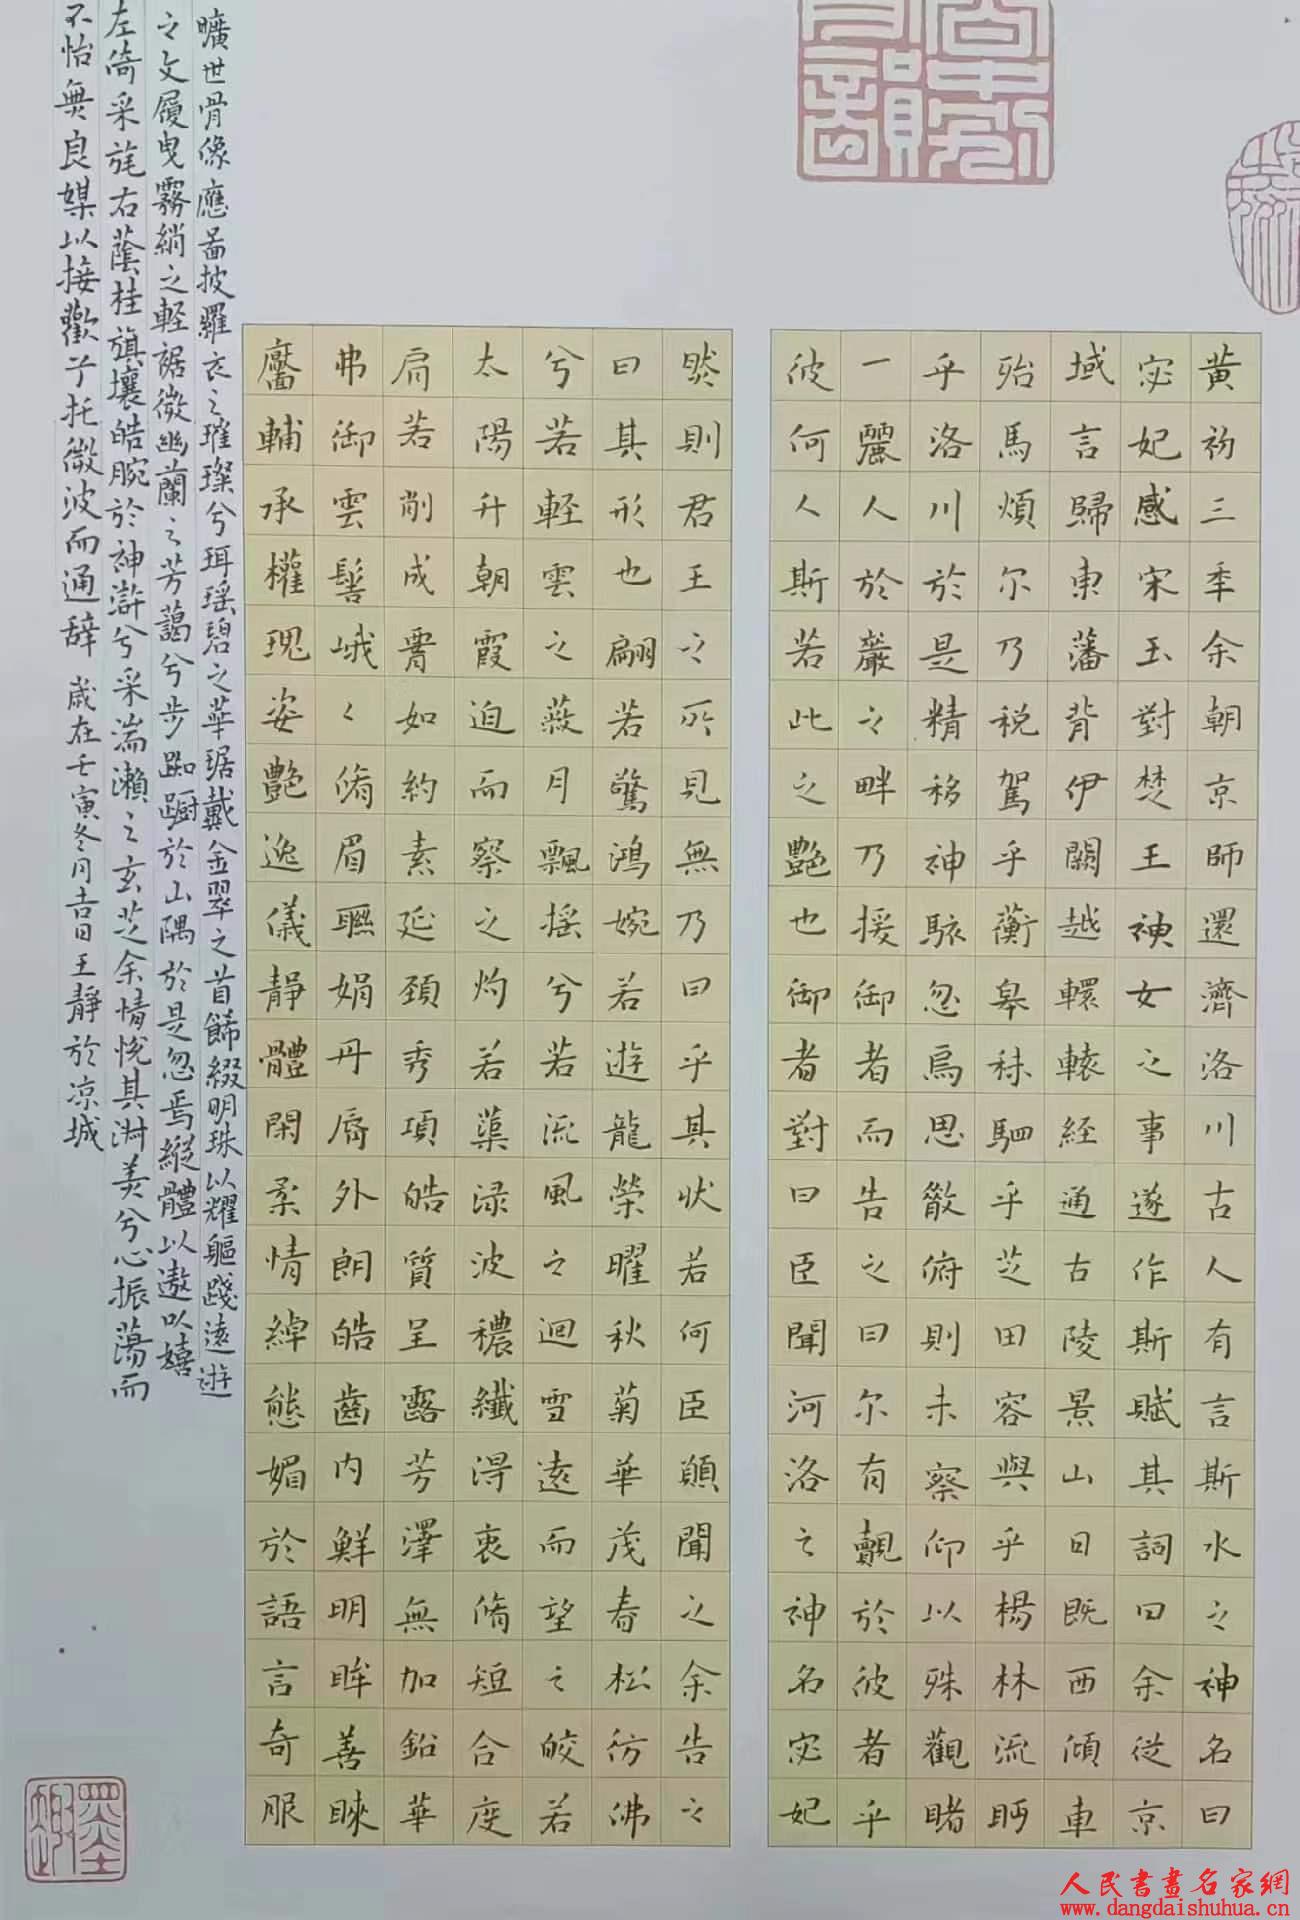 黃初三年余朝京師還濟洛川古人有言斯水之神名曰
宓妃感宋玉對楚王神女之事遂作斯賦其詞曰余從京
域言歸東藩背伊闕越轘轅經通古陵景山日既西傾車
殆馬煩尔乃税駕乎蘅皋秣駟乎芝田容與乎楊林流眄
乎洛川於是精移神駭忽焉思散俯則未察仰以殊觀睹
一麗人於巖之畔乃援御者而告之曰尔有覿於彼者乎
彼何人斯若此之艷也御者對曰臣聞河洛之神名宓妃
然則君王之所見無乃曰乎其狀若何臣願聞之余告之
曰其形也翩若驚鴻婉若遊龍榮曜秋菊華茂春松仿佛
兮若軽雲之蔽月飄搖兮若流風之迴雪遠而望之皎若
太陽升朝霞迫而察之灼若蕖渌波穠纖得衷脩短合度
肩若削成署如約素延頚秀項皓質呈露芳澤無加鉛華
弗御雲髻峨々脩眉聯娟丹脣外朗皓齒內鮮明眸善睞
靨輔承權瑰姿艷逸儀靜體閑柔情綽態媚於語言奇服
曠世骨像應圖披羅衣之璀璨兮珥瑶碧之華琚戴金翠之首飾綴明珠以耀軀踐遠遊
之文履曳霧綃之軽裾微幽蘭之芳藹兮步踟躕於山隅於是忽焉縱體以遨以嬉
左倚采旄右蔭桂旗攘皓腕於神滸兮采湍瀨之玄芝余情悅其淑美兮心振蕩而
不怡無良媒以接歡兮托微波而通辞 歲在壬寅冬月吉日王靜於凉城
墨趣
人民書畫名家網
www.dangdaishuhua.cn